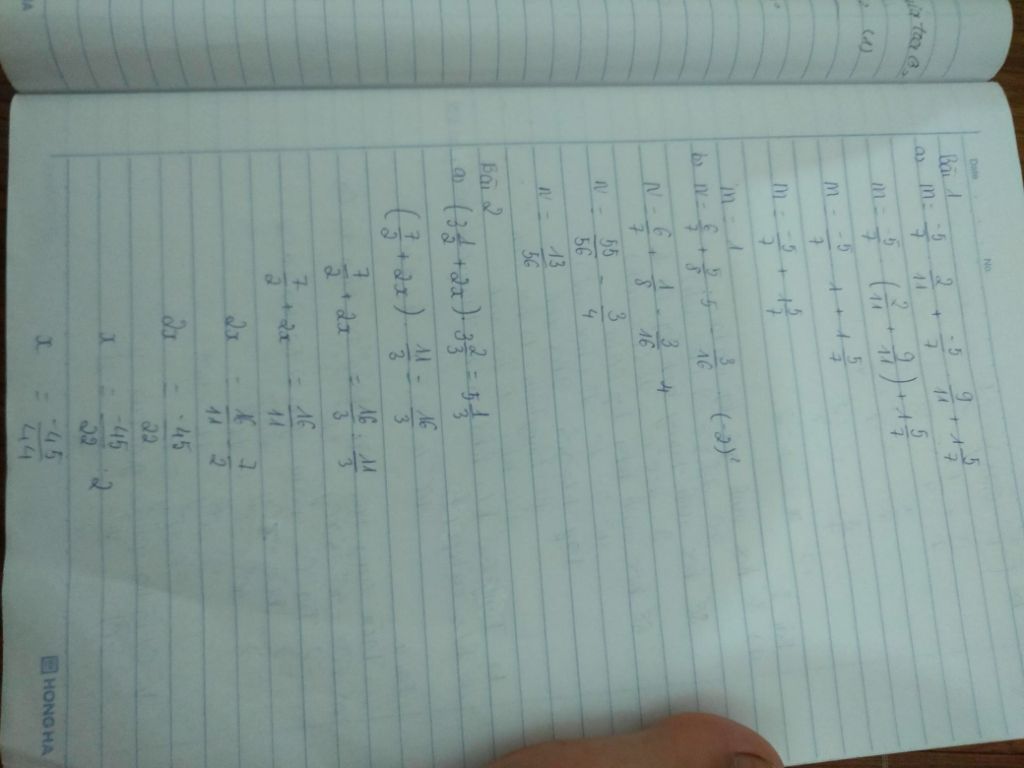 Date
No.
Bài 1
a) M = -5/7 . 2/11 + -5/7 . 9/11 + 1 5/7
M = -5/7 . (2/11 + 9/11) + 1 5/7
M = -5/7 . 1 + 1 5/7
M = -5/7 + 1 5/7
M = 1
b) N = 6/7 + 5/8 : 5 - 3/16 . (-2)²
N = 6/7 + 1/8 - 3/16 . 4
N = 55/56 - 3/4
N = 13/56
Bài 2
a) (3 1/2 + 2x) . 3 2/3 = 5 1/3
(7/2 + 2x) . 11/3 = 16/3
7/2 + 2x = 16/3 : 11/3
7/2 + 2x = 16/11
2x = 16/11 - 7/2
2x = -45/22
x = -45/22 : 2
x = -45/44
HONG HA